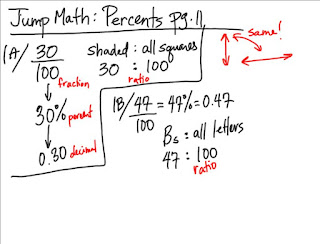 Jump Math: Percents pg.11
1A/ 30
100
fraction
30% percent
0.30 decimal
shaded : all squares
30 : 100
ratio
same!
1B/ 47 = 47% = 0.47
100
Bs : all letters
47 : 100
ratio